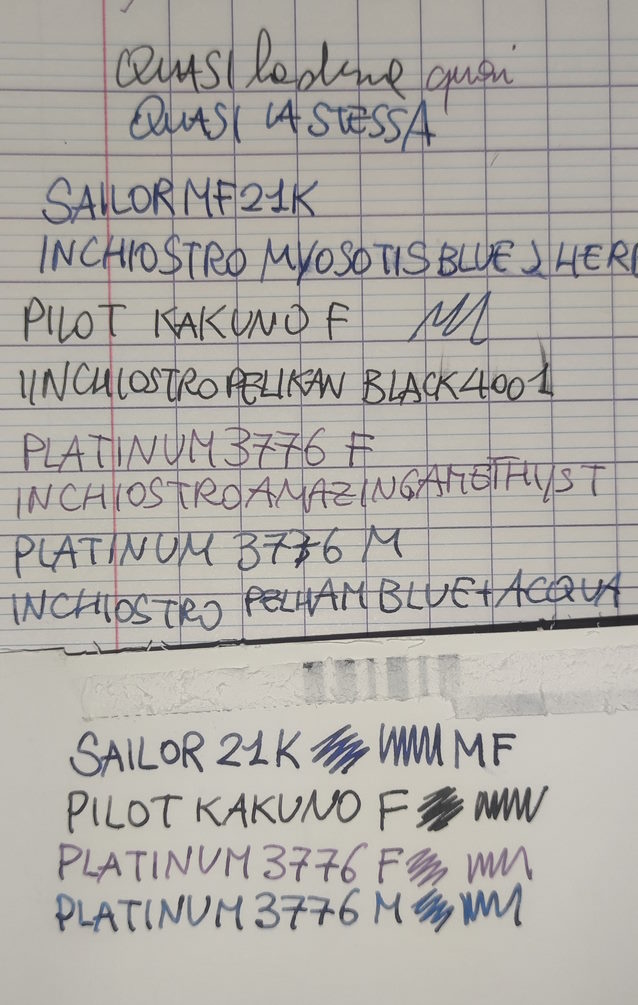 QUASI
QUASI LA STESSA
SAILOR MF 21K
INCHIOSTRO MYOSOTIS BLUE J HERB
PILOT KAKUNO F
INCHIOSTRO PELIKAN BLACK 4001
PLATINUM 3776 F
INCHIOSTRO AMAZING AMETHYST
PLATINUM 3776 M
INCHIOSTRO PELHAM BLUE + ACQUA
SAILOR 21K MF
PILOT KAKUNO F
PLATINUM 3776 F
PLATINUM 3776 M